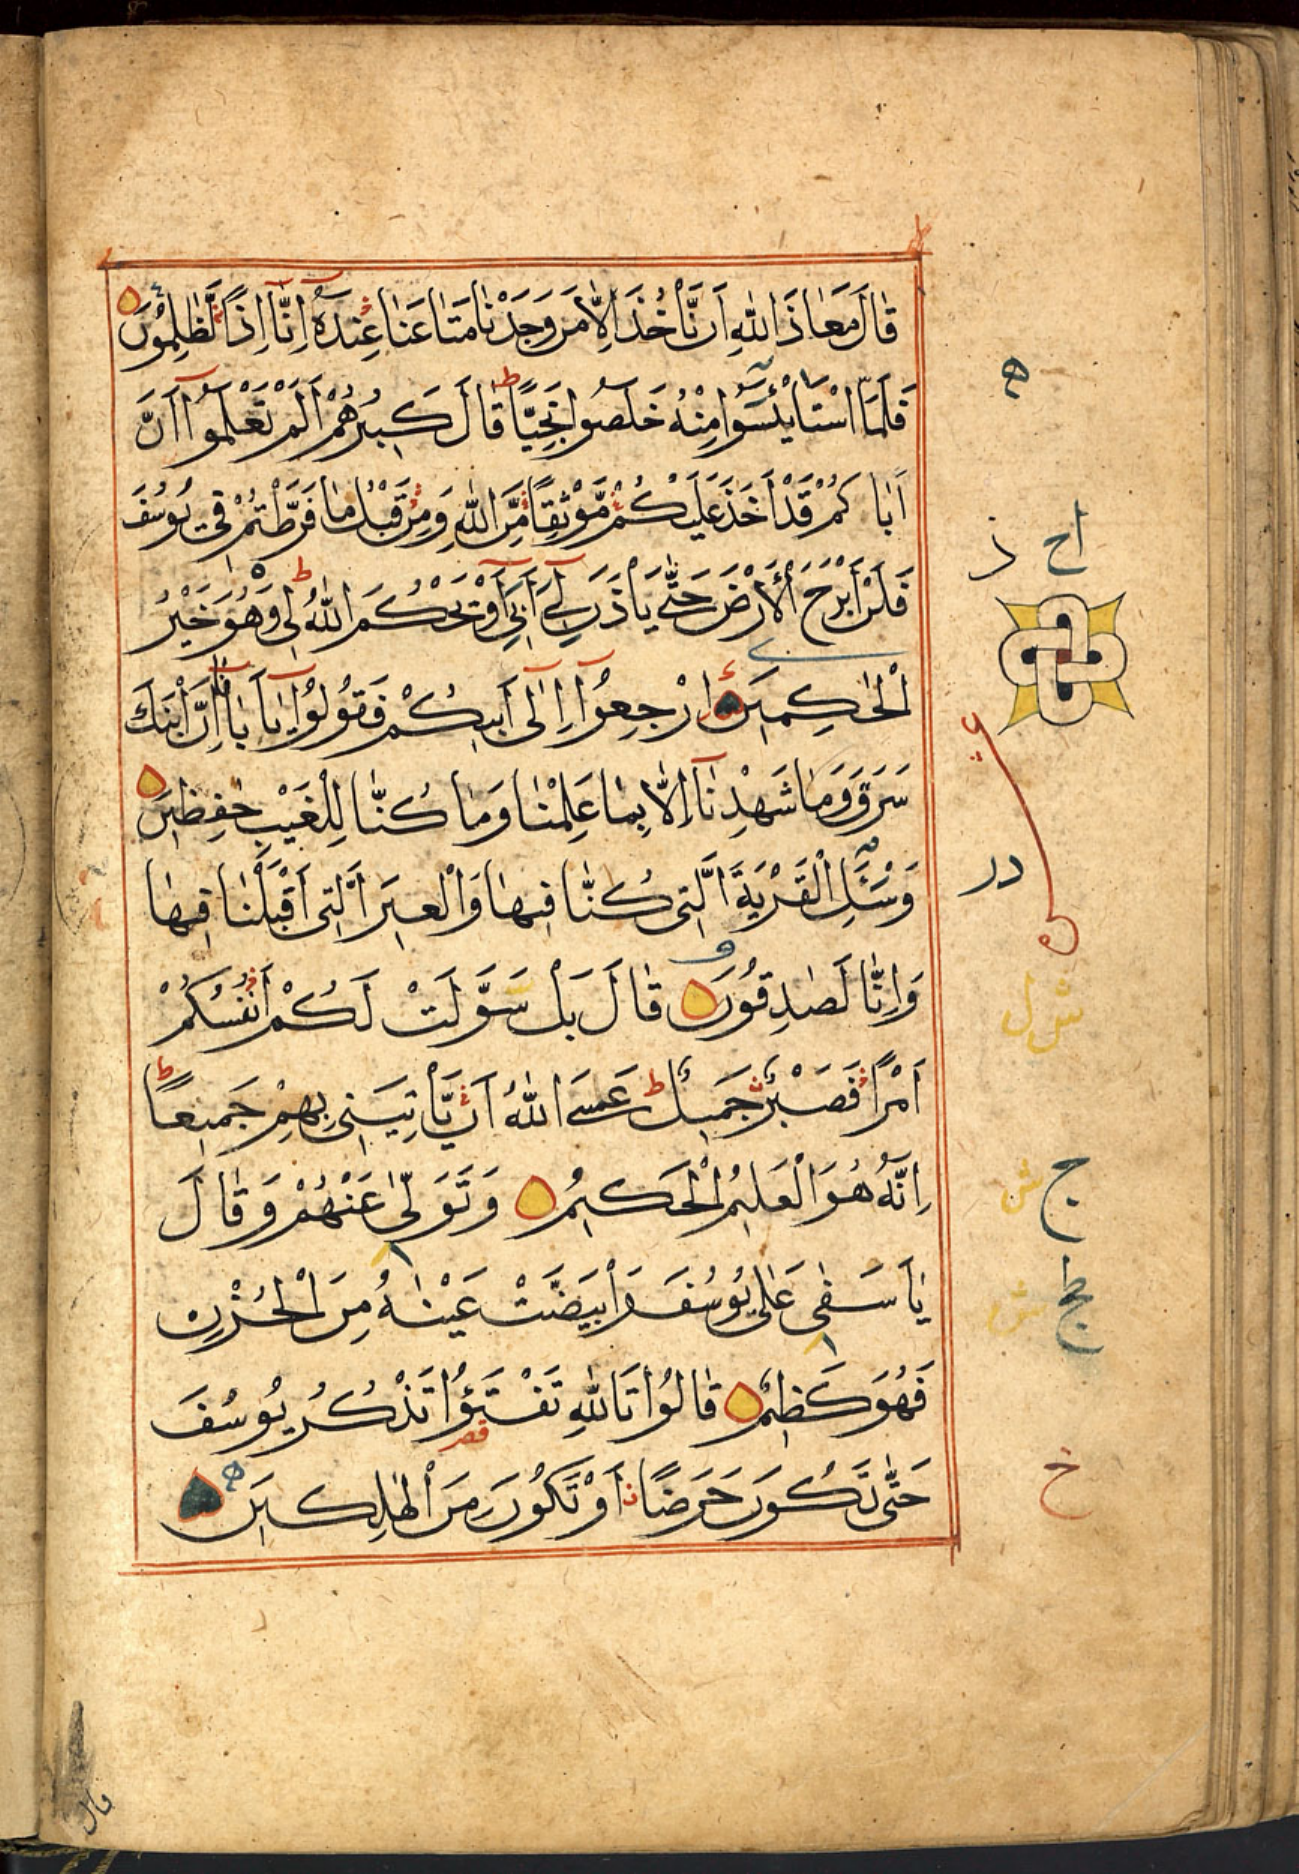 قَالَ مَعَاذَ اللّٰهِ اَنْ نَّأْخُذَ اِلَّا مَنْ وَجَدْنَا مَتَاعَنَا عِنْدَهُ اِنَّا اِذًا لَّظٰلِمُوْنَ
فَلَمَّا اسْتَايْئَسُوا مِنْهُ خَلَصُوا نَجِيًّا ط قَالَ كَبِيرُهُمْ اَلَمْ تَعْلَمُوا اَنَّ
اَبَاكُمْ قَدْ اَخَذَ عَلَيْكُمْ مَّوْثِقًا مِّنَ اللّٰهِ وَمِنْ قَبْلُ مَا فَرَّطْتُمْ فِي يُوسُفَ
فَلَنْ اَبْرَحَ الْاَرْضَ حَتّٰى يَأْذَنَ لِي اَبِي اَوْ يَحْكُمَ اللّٰهُ لِي وَهُوَ خَيْرُ
الْحٰكِمِينَ اِرْجِعُوا اِلٰى اَبِيكُمْ فَقُولُوا يَا اَبَانَا اِنَّ ابْنَكَ
سَرَقَ وَمَا شَهِدْنَا اِلَّا بِمَا عَلِمْنَا وَمَا كُنَّا لِلْغَيْبِ حٰفِظِينَ
وَسْئَلِ الْقَرْيَةَ الَّتِى كُنَّا فِيهَا وَالْعِيرَ الَّتِى اَقْبَلْنَا فِيهَا
وَاِنَّا لَصٰدِقُونَ قَالَ بَلْ سَوَّلَتْ لَكُمْ اَنْفُسُكُمْ
اَمْرًا فَصَبْرٌ جَمِيلٌ ط عَسَى اللّٰهُ اَنْ يَّأْتِيَنِى بِهِمْ جَمِيعًا ط
اِنَّهُ هُوَ الْعَلِيمُ الْحَكِيمُ وَتَوَلّٰى عَنْهُمْ وَقَالَ
يٰاَسَفٰى عَلٰى يُوسُفَ وَابْيَضَّتْ عَيْنٰهُ مِنَ الْحُزْنِ
فَهُوَ كَظِيمٌ قَالُوا تَاللّٰهِ تَفْتَؤُا تَذْكُرُ يُوسُفَ
حَتّٰى تَكُونَ حَرَضًا اَوْ تَكُونَ مِنَ الْهٰلِكِينَ
قال